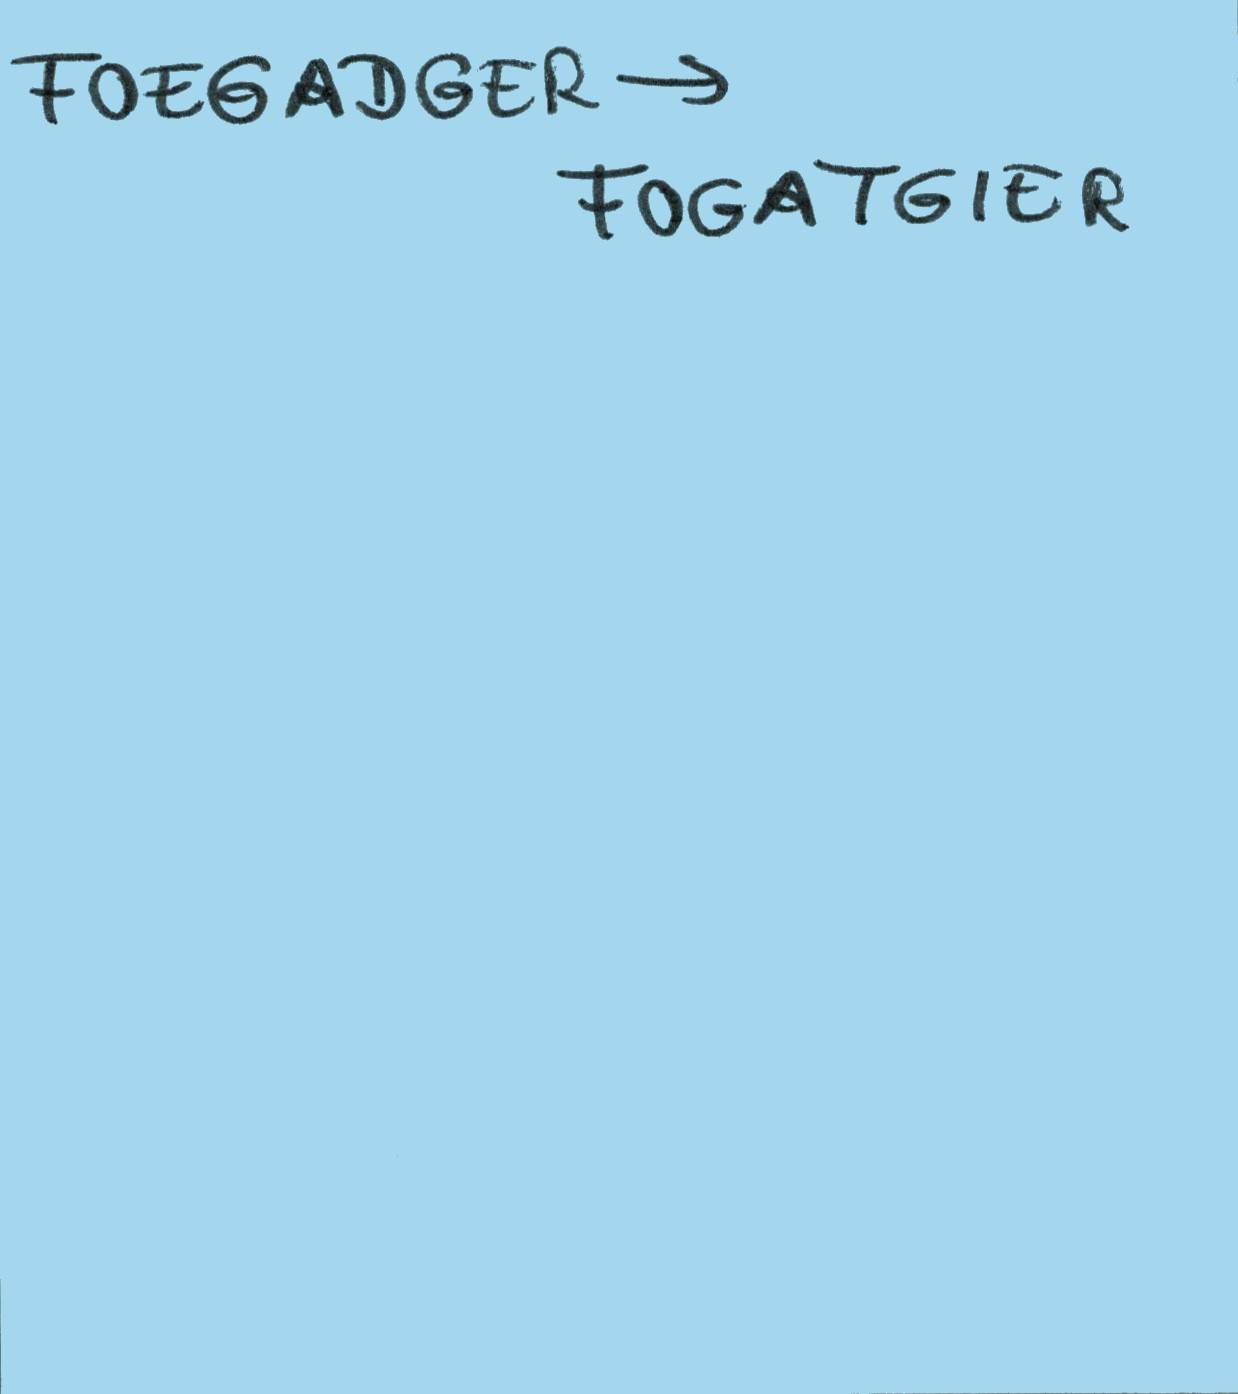 FOEGADGER →
FOGATGIER